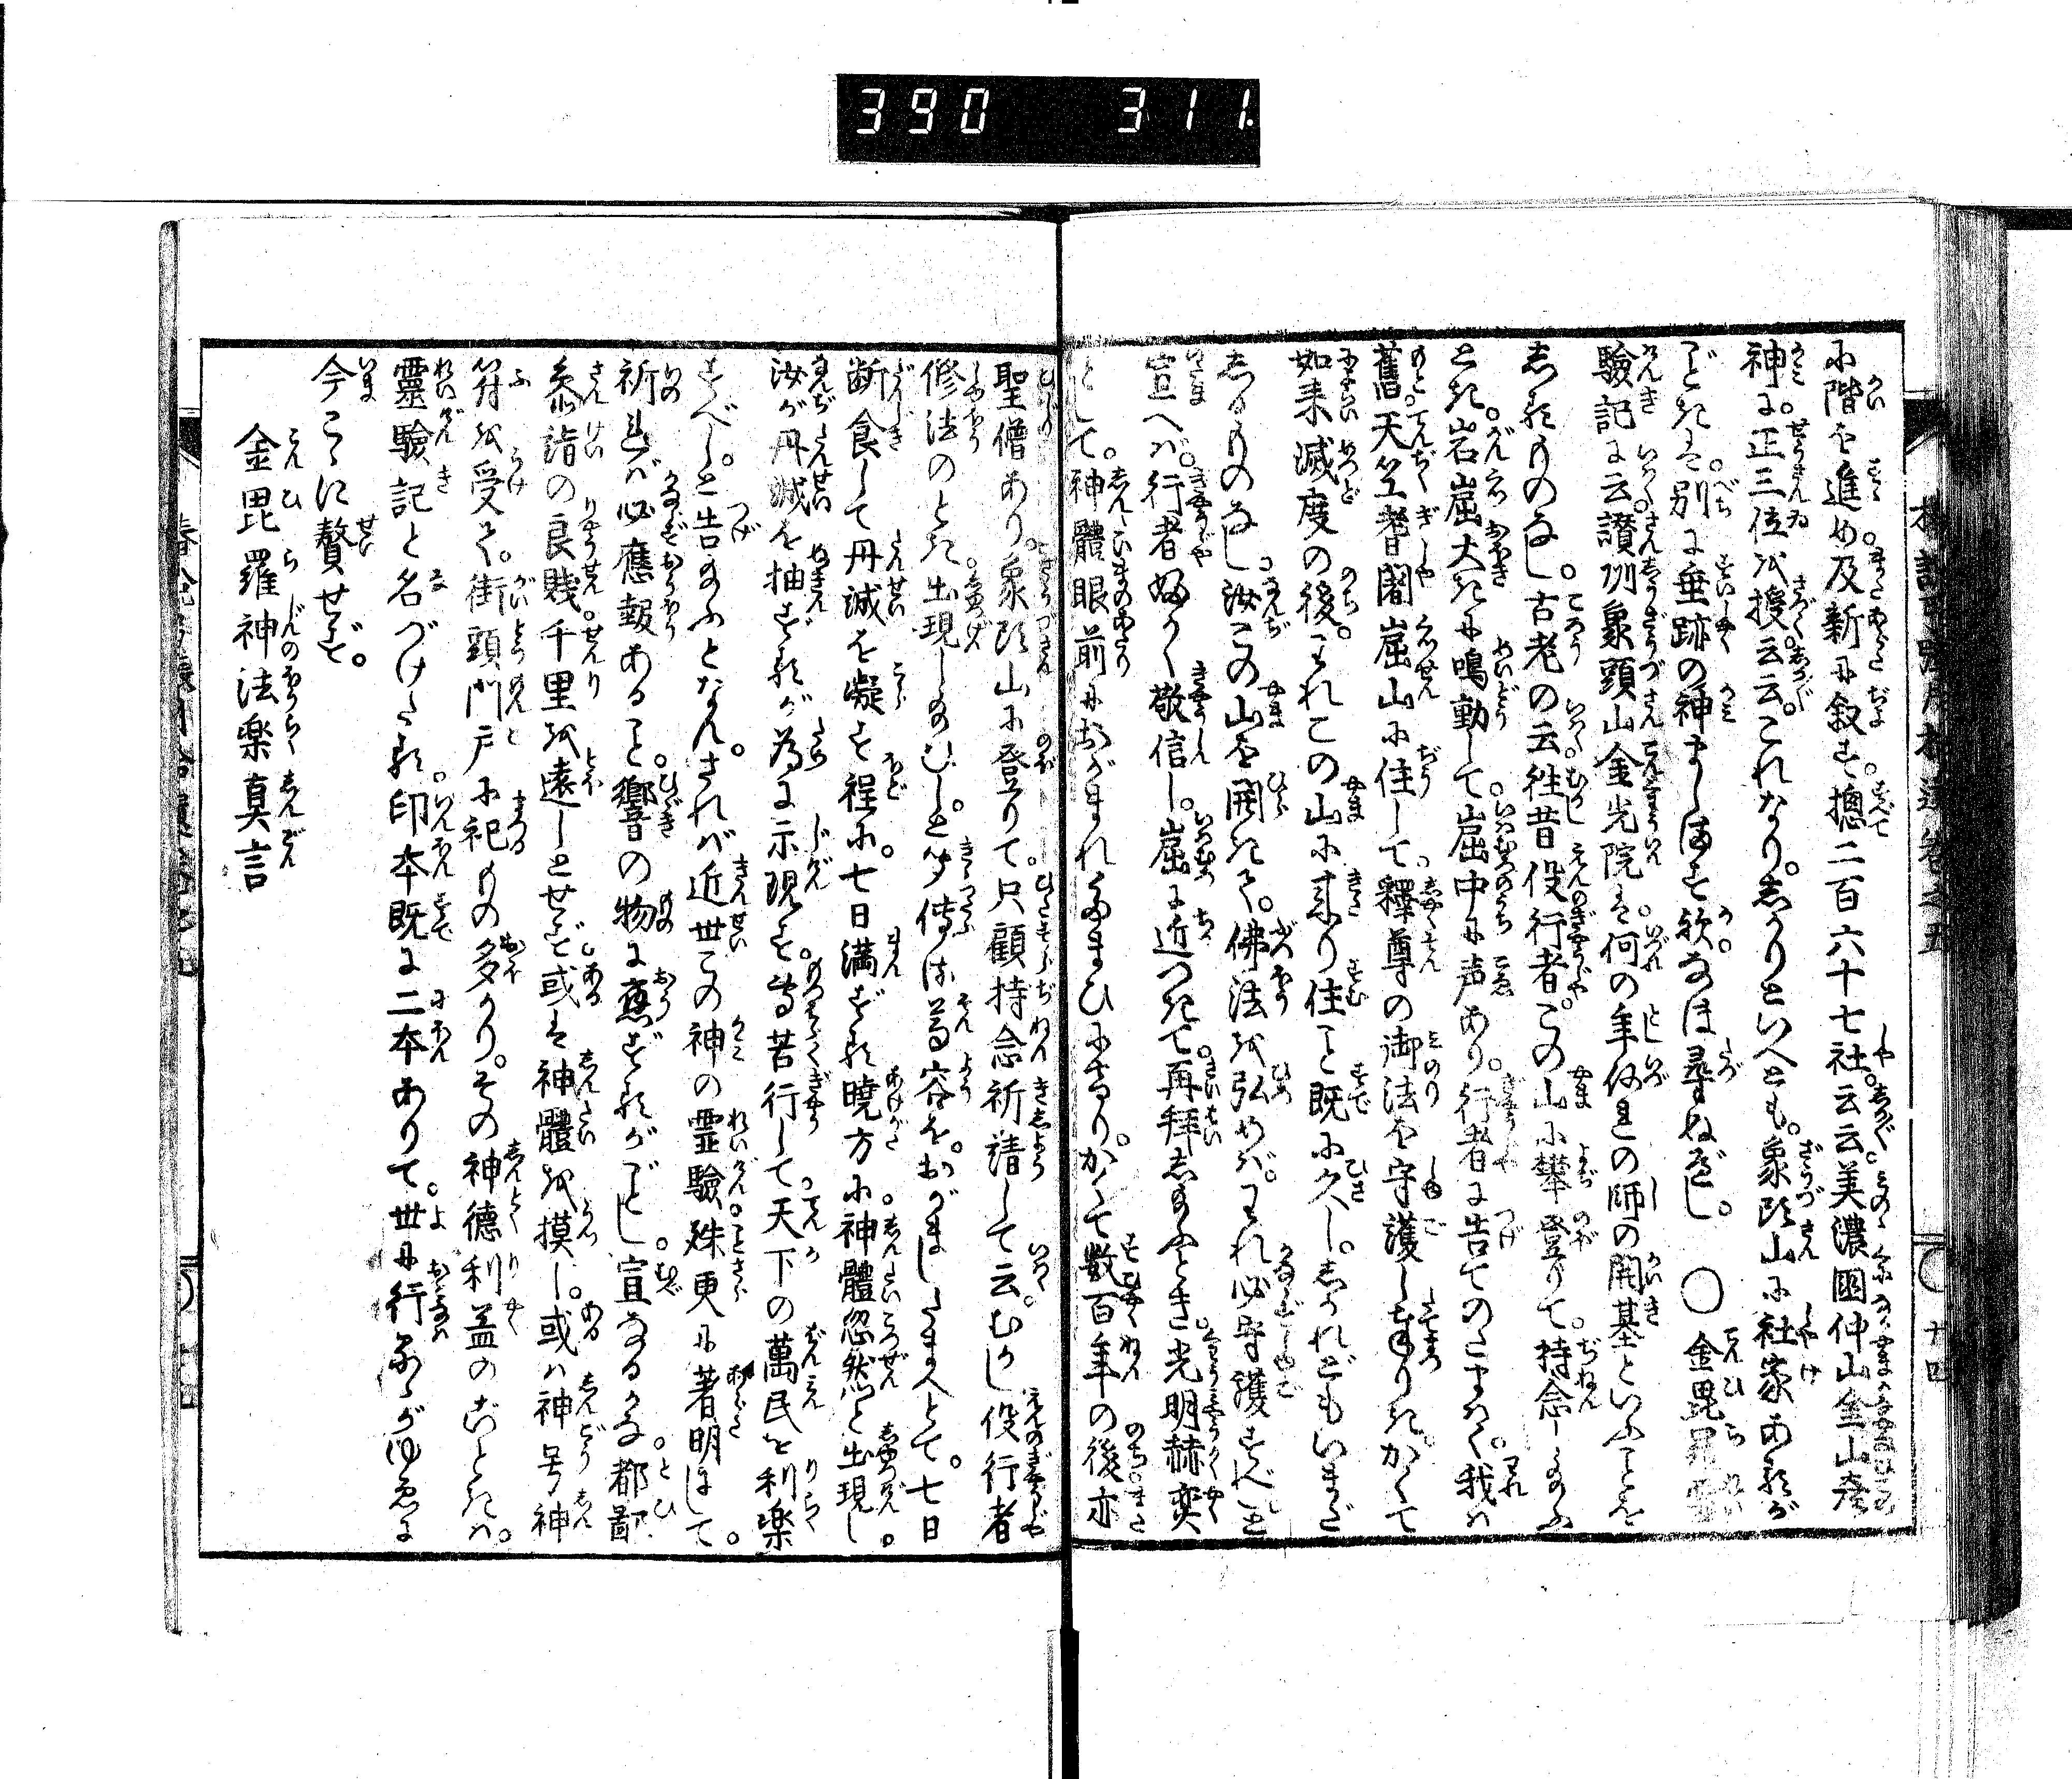 390 311.
に階を進め及新に叙す。摠二百六十七社。云云美濃國仲山金山彦
神に正三位を授云云。これなり。しかりといへども。象頭山に社家あるが
ごときは。別に垂跡の神ましますか。なほ尋ぬべし。○金毘羅靈
驗記に云讃州象頭山金光院は。何の年何れの師の開基といふことを
しるものなし。古老の云徃昔役行者。この山に攀登りて。持念し給ふ
とき。岩屈大きに鳴動して。屈中に声あり。行者に告てのたまはく。我は
舊天竺耆闍屈山に住して。釋尊の御法を守護し奉りき。かくて
如来滅度の後。われこの山に来り住こと既に久し。しかれどもいまだ
しるものなし。汝この山を開きて。佛法を弘めば。われ必守護すべしと
宣へば。行者ふかく敬信し。屈に近づきて。再拜し給ふとき。光明赫奕
として。神體眼前におがまれたまひにけり。かくて数百年の後亦
聖僧あり。象頭山に登りて。只顧持念祈請して云。むかし役行者
修法のとき。出現し給ひしと。聞傳ほる尊容を。おがましたまへとて。七日
断食して丹誠を凝す程に。七日満ずる曉方に。神體忽然と出現し。
汝が丹誠を抽ずるが為に示現す。尚苦行して。天下の萬民を利楽
すべし。と告給ふとなん。されば近世この神の霊驗。殊更に著明ほして。
祈れば必應報あること。響の物に應ずるがごとし。宜なるかな。都鄙
参詣の良賤。千里を遠しとせず。或は神體を摸し。或は神号神
符を受く。街頭門戸に祀もの多かり。その神德利益のごときは。
靈驗記と名づけたる。印本既に二本ありて。世に行るゝがゆゑに
今こゝに贅せず。
金毘羅神法楽真言